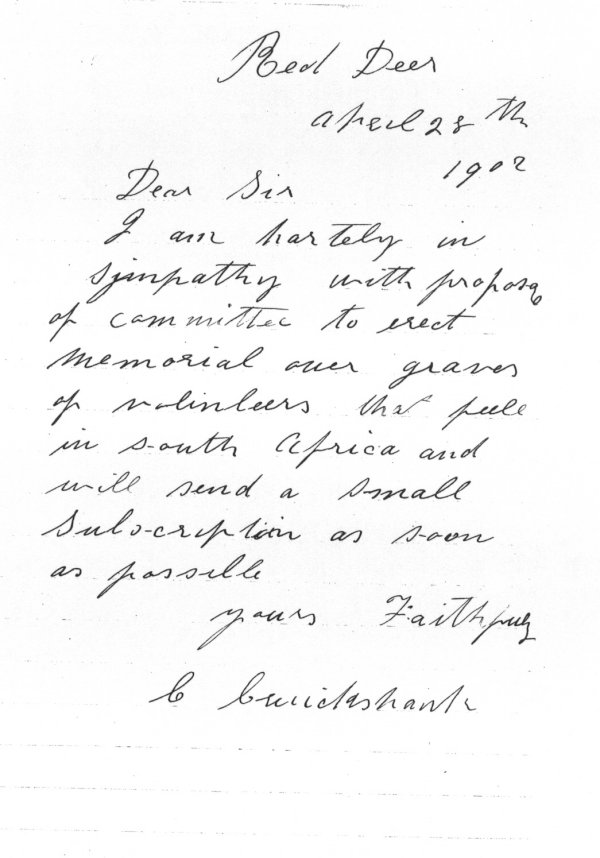 Red Deer
April 28th
1902
Dear Sir
I am hartely in
sympathy with proposa
of committee to erect
memorial over graves
of volinteers that fell
in south Africa and
will send a small
Subscription as soon
as possible
yours Faithfully
C Cruickshank